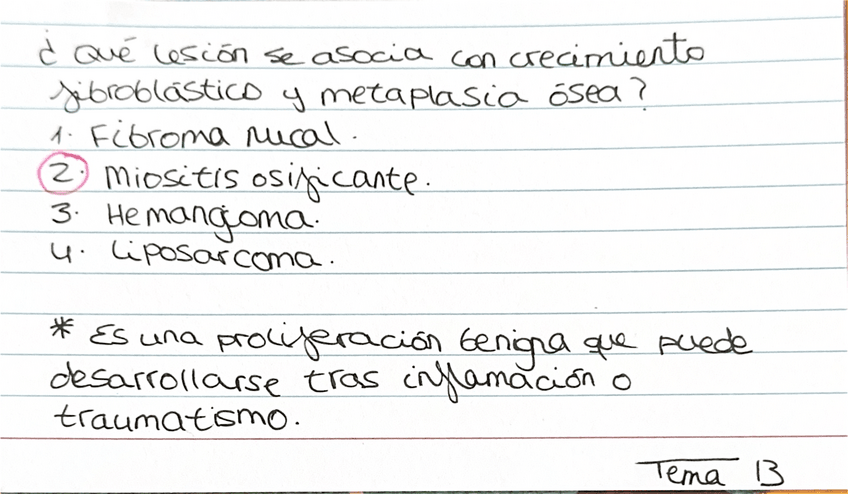 ¿Qué lesión se asocia con crecimiento
fibroblástico y metaplasia ósea?
1. Fibroma nucal.
2. Miositis osificante.
3. Hemangioma.
4. Liposarcoma.
* Es una proliferación benigna que puede
desarrollarse tras inflamación o
traumatismo.
Tema 13